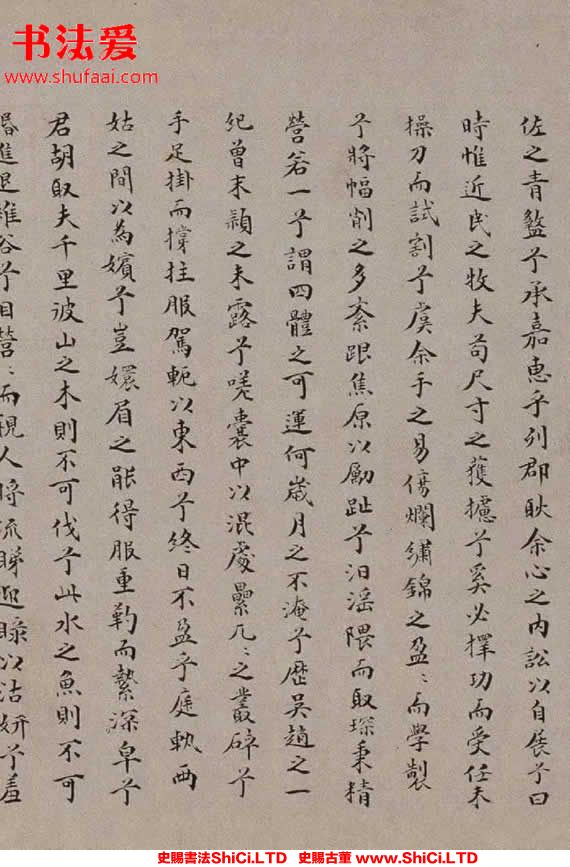 书法爱
www.shufaai.com
佐之青盤兮承嘉惠乎列郡耿余心之内訟以自展兮曰
時惟近民之牧夫苟尺寸之獲攄兮奚必擇功而受任未
操刀而試割兮虞余手之易傷爛繡錦之盈〻而學製
兮將幅削之多紊跟焦原以勵趾兮汩滛隈而取琛秉精
營若一兮謂四體之可運何歲月之不淹兮歷吳趙之一
紀曾末穎之未露兮嗟囊中以混處纍兀〻之叢碎兮
手足掛而撐拄服駕軛以東西兮終日不盈乎庭執両
姑之間以為嬪兮豈嬛眉之能得服重靮而縶深阜兮
君胡取夫千里波山之木則不可伐兮此水之魚則不可
進退維谷兮目營〻而覘人時流睇迎睩以沽妍兮羞
史賜書法ShiCi.LTD 史賜古董 www.ShiCi.LTD